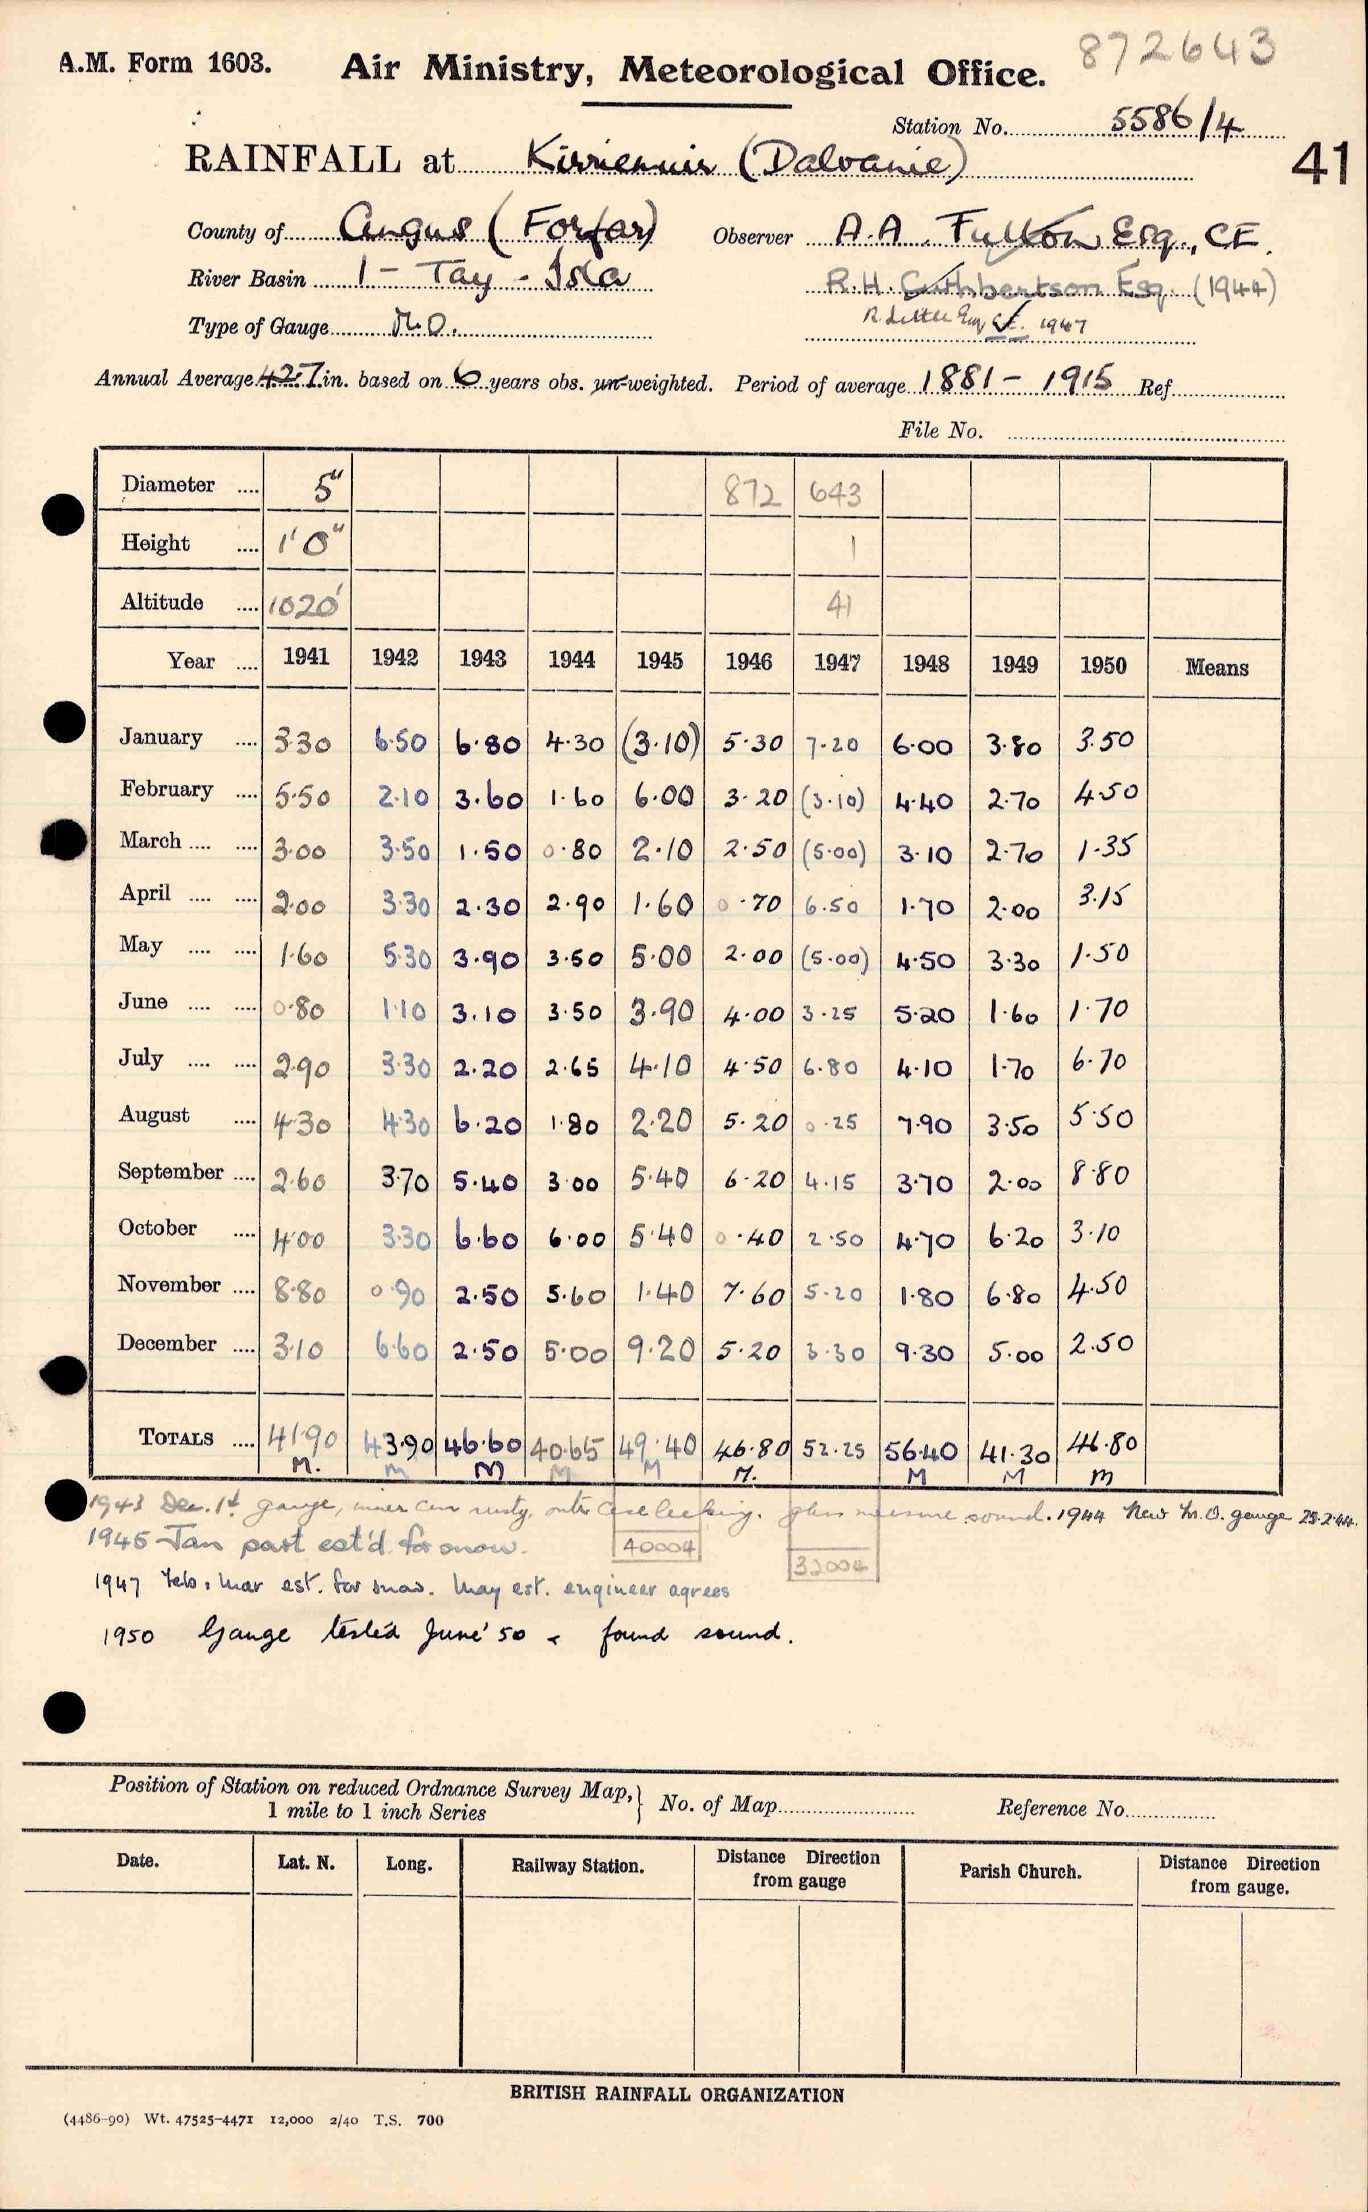 872643
A.M. Form 1603. Air Ministry, Meteorological Office.
Station No. 5586/4
41
RAINFALL at Kirriemuir (Dalvanie)
County of Angus (Forfar) Observer A.A. Fulton Esq., C.E.
River Basin 1 - Tay - Isla R.H. Cuthbertson Esq. (1944)
Type of Gauge M.O. R. Little Esq C.E. 1947
Annual Average 42.7 in. based on 6 years obs. un-weighted. Period of average 1881 - 1915 Ref.
File No.
Diameter .... 5" 872 643
Height .... 1'0" 1
Altitude .... 1020' 41
Year .... 1941 1942 1943 1944 1945 1946 1947 1948 1949 1950 Means
January .... 3.30 6.50 6.80 4.30 (3.10) 5.30 7.20 6.00 3.80 3.50
February .... 5.50 2.10 3.60 1.60 6.00 3.20 (3.10) 4.40 2.70 4.50
March .... .... 3.00 3.50 1.50 0.80 2.10 2.50 (5.00) 3.10 2.70 1.35
April .... .... 2.00 3.30 2.30 2.90 1.60 0.70 6.50 1.70 2.00 3.15
May .... .... 1.60 5.30 3.90 3.50 5.00 2.00 (5.00) 4.50 3.30 1.50
June .... .... 0.80 1.10 3.10 3.50 3.90 4.00 3.25 5.20 1.60 1.70
July .... .... 2.90 3.30 2.20 2.65 4.10 4.50 6.80 4.10 1.70 6.70
August .... 4.30 4.30 6.20 1.80 2.20 5.20 0.25 7.90 3.50 5.50
September .... 2.60 3.70 5.40 3.00 5.40 6.20 4.15 3.70 2.00 8.80
October .... 4.00 3.30 6.60 6.00 5.40 0.40 2.50 4.70 6.20 3.10
November .... 8.80 0.90 2.50 5.60 1.40 7.60 5.20 1.80 6.80 4.50
December .... 3.10 6.60 2.50 5.00 9.20 5.20 3.30 9.30 5.00 2.50
TOTALS .... 41.90 43.90 46.60 40.65 49.40 46.80 52.25 56.40 41.30 46.80
M. M M M M M. M M M
1943 Dec. 1st gauge, inner can rusty, outer case leaking. glass measure sound. 1944 New M.O. gauge 25.2.44.
1945 Jan part est'd for snow. 40004 32004
1947 Feb, Mar est. for snow. May est. engineer agrees
1950 Gauge tested June '50 & found sound.
Position of Station on reduced Ordnance Survey Map,} No. of Map Reference No.
1 mile to 1 inch Series
Date. Lat. N. Long. Railway Station. Distance Direction from gauge Parish Church. Distance Direction from gauge.
BRITISH RAINFALL ORGANIZATION
(4486-90) Wt. 47525-4471 12,000 2/40 T.S. 700